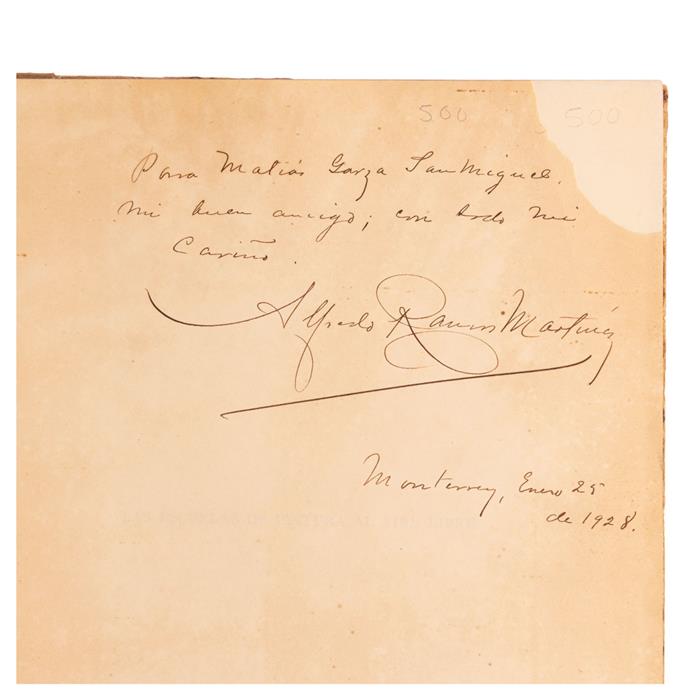 500 500
Para Matias Garza San Miguel.
mi buen amigo; con todo mi
Cariño.
Alfredo Ramos Martínez
Monterrey, Enero 25
de 1928.